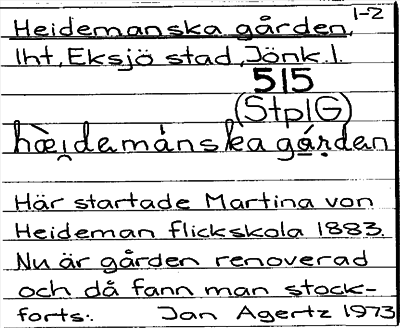 1-2
Heidemanska gården,
lht, Eksjö stad, Jönk. l.
515
(StplG)
hæ̀i̯demánska gáṛden
Här startade Martina von
Heideman flickskola 1883.
Nu är gården renoverad
och då fann man stock-
forts. Jan Agertz 1973